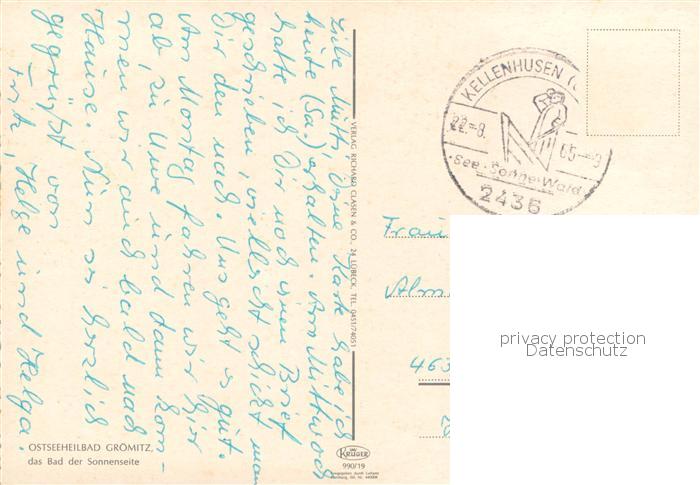 Liebe Mutti, Deine Karte habe ich
heute (Sa.) erhalten. Am Mittwoch
hatte ich Dir noch einen Brief
geschrieben, vielleicht schickt man
Dir den nach. Uns geht es gut.
Am Montag fahren wir hier
ab, zu Uwe und dann kom-
men wir auch bald nach
Hause. Nun sei herzlich
gegrüßt von
Fritz, Helge und Helga.
OSTSEEHEILBAD GRÖMITZ,
das Bad der Sonnenseite
VERLAG RICHARD CLASEN & CO., 24 LÜBECK, TEL. 0451/74051
KRÜGER
990/19
KELLENHUSEN
22.-8. 65-9
See·Sonne·Wald
2436
Frau
Alm
463
privacy protection
Datenschutz